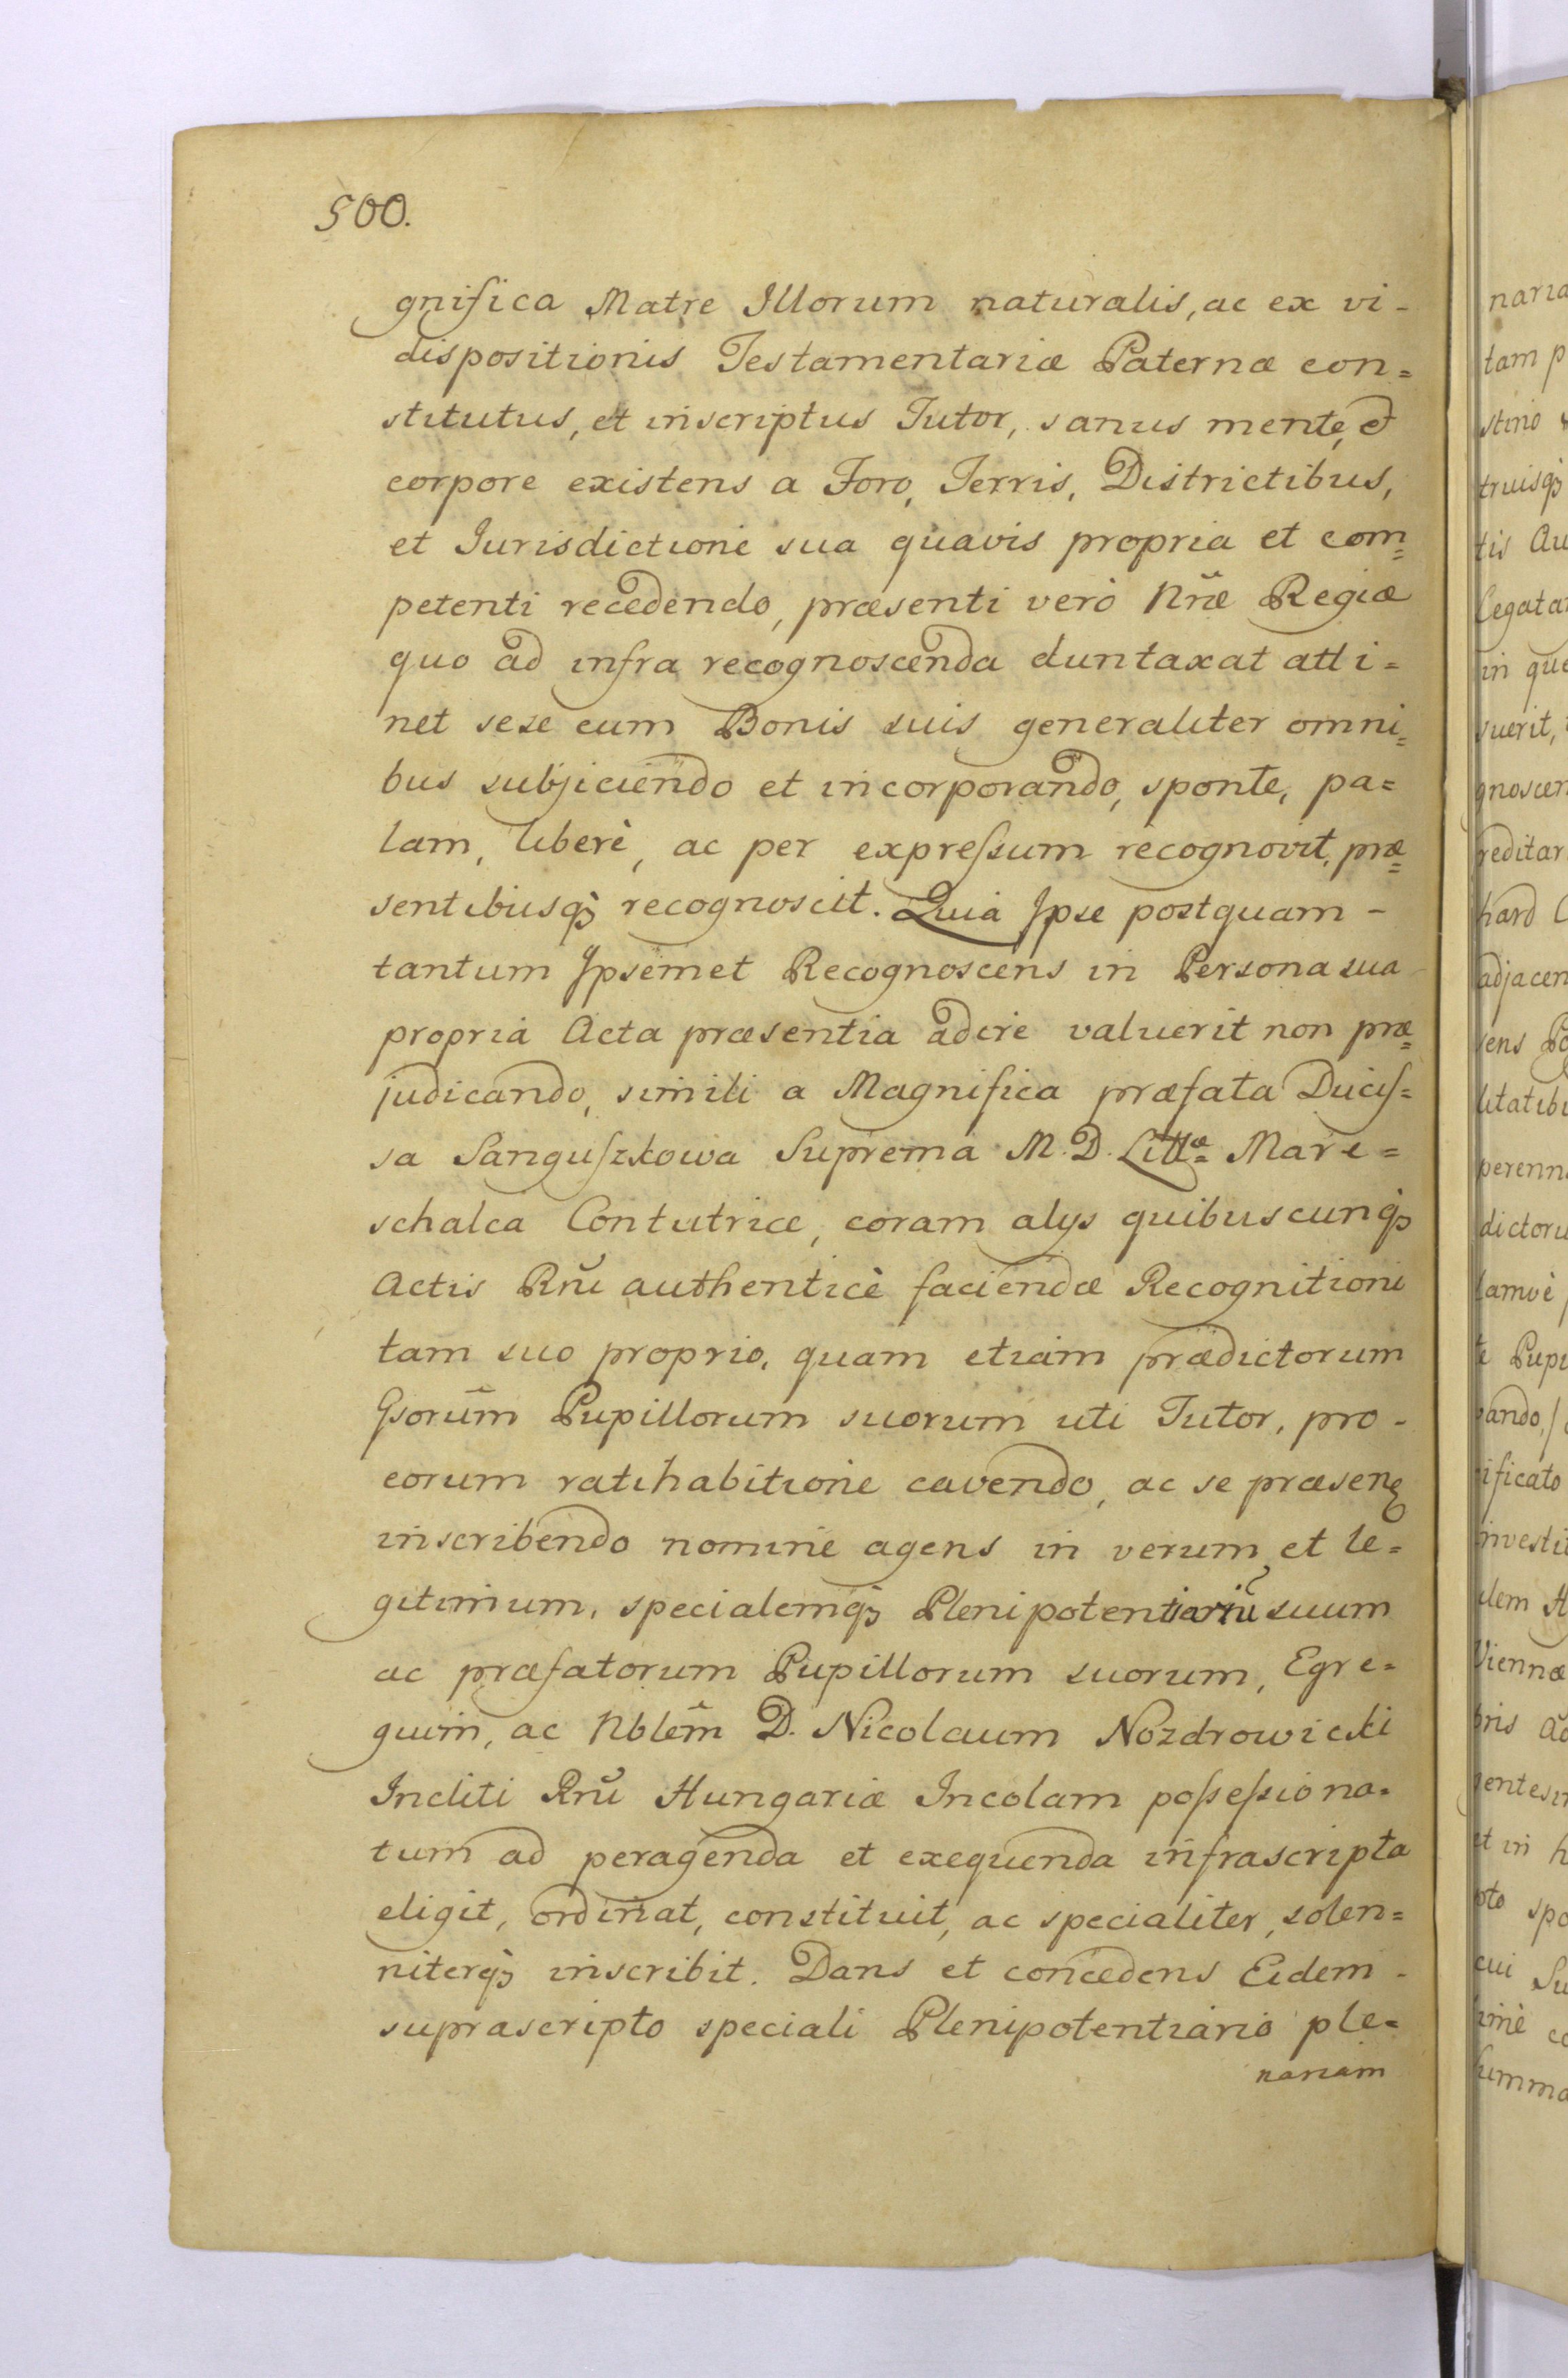 500.
gnifica Matre Illorum naturalis, ac ex vi-
dispositionis Testamentariæ Paternæ con=
stitutus, et inscriptus Tutor, sanus mente, et
corpore existens a Foro, Terris, Districtibus,
et Jurisdictione sua quavis propria et com=
petenti recedendo, præsenti verò Nræ Regiæ
quo ad infra recognoscenda duntaxat atti=
net sese cum Bonis suis generaliter omni=
bus subjiciendo et incorporando, sponte, pa=
lam, liberè, ac per expreſsum recognovit, præ=
sentibusq̃ recognoscit. Quia Ipse postquam -
tantum Ipsemet Recognoscens in Persona sua
propria Acta præsentia adire valuerit non præ=
judicando, simili a Magnifica præfata Duciſ=
sa Sanguſzkowa Suprema M. D. Littæ Mare=
schalca Contutrice, coram alys quibuscunq̃
Actis Rñi authenticè faciendæ Recognitioni
tam suo proprio, quam etiam prædictorum
Gsorum̃ Pupillorum suorum uti Tutor, pro-
eorum ratihabitione cavendo, ac se præsenꝫ
inscribendo nomine agens in verum, et le=
gitimum, specialemq̃ Plenipotentiariũ suum
ac præfatorum Pupillorum suorum, Egre=
gium, ac Nblem̃ D. Nicolaum Nozdrowicki
Incliti Rñi Hungariæ Incolam poſseſsiona=
tum ad peragenda et exequenda infrascripta
eligit, ordinat, constituit, ac specialiter, solen=
niterq̃ inscribit. Dans et concedens Eidem -
suprascripto speciali Plenipotentiario ple=
nariam
naria
tam p
stino
truisq̃
tis Au
legata
in que
suerit,
gnoscen
reditar
hard C
adjacen
sens Po
litatibu
perenn
dictoru
tamvè
te Pupi
pando,
ificato
investi
dem H
Viennæ
pris Ac
gentes
et in h
pto spo
cui Su
imè co
summa